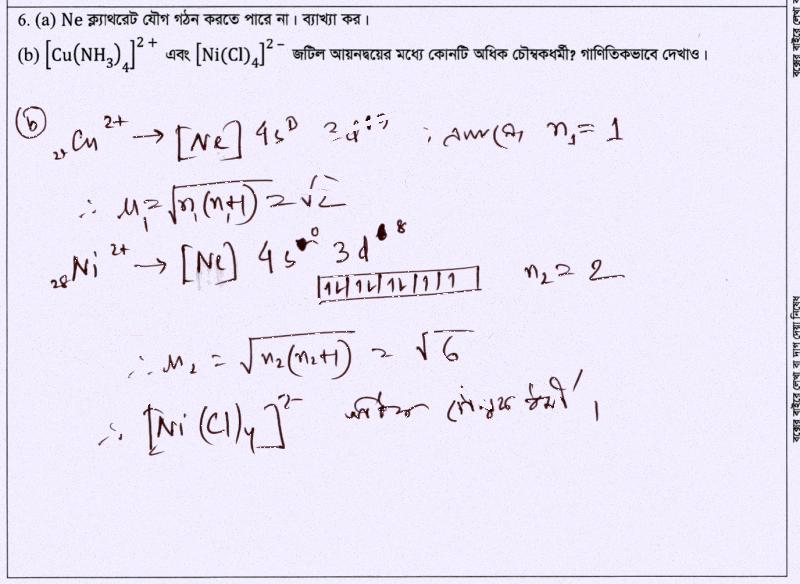 6. (a) Ne ক্ল্যাথরেট যৌগ গঠন করতে পারে না। ব্যাখ্যা কর।
(b) [Cu(NH₃)₄]²⁺ এবং [Ni(Cl)₄]²⁻ জটিল আয়নদ্বয়ের মধ্যে কোনটি অধিক চৌম্বকধর্মী? গাণিতিকভাবে দেখাও।
(b) Cu²⁺ → [Ne] 4s⁰ n₁ = 1
∴ μ₁ = √n₁(n₁+1) = √2
₂₈Ni²⁺ → [Ne] 4s⁰ 3d⁸
1L 1L 1L 1 1 n₂ = 2
∴ μ₂ = √n₂(n₂+1) = √6
∴ [Ni(Cl)₄]²⁻ অধিক চৌম্বক ধর্মী।
বক্সের বাইরে লেখা বা দাগ দেয়া নিষেধ
বক্সের বাইরে লেখা ব